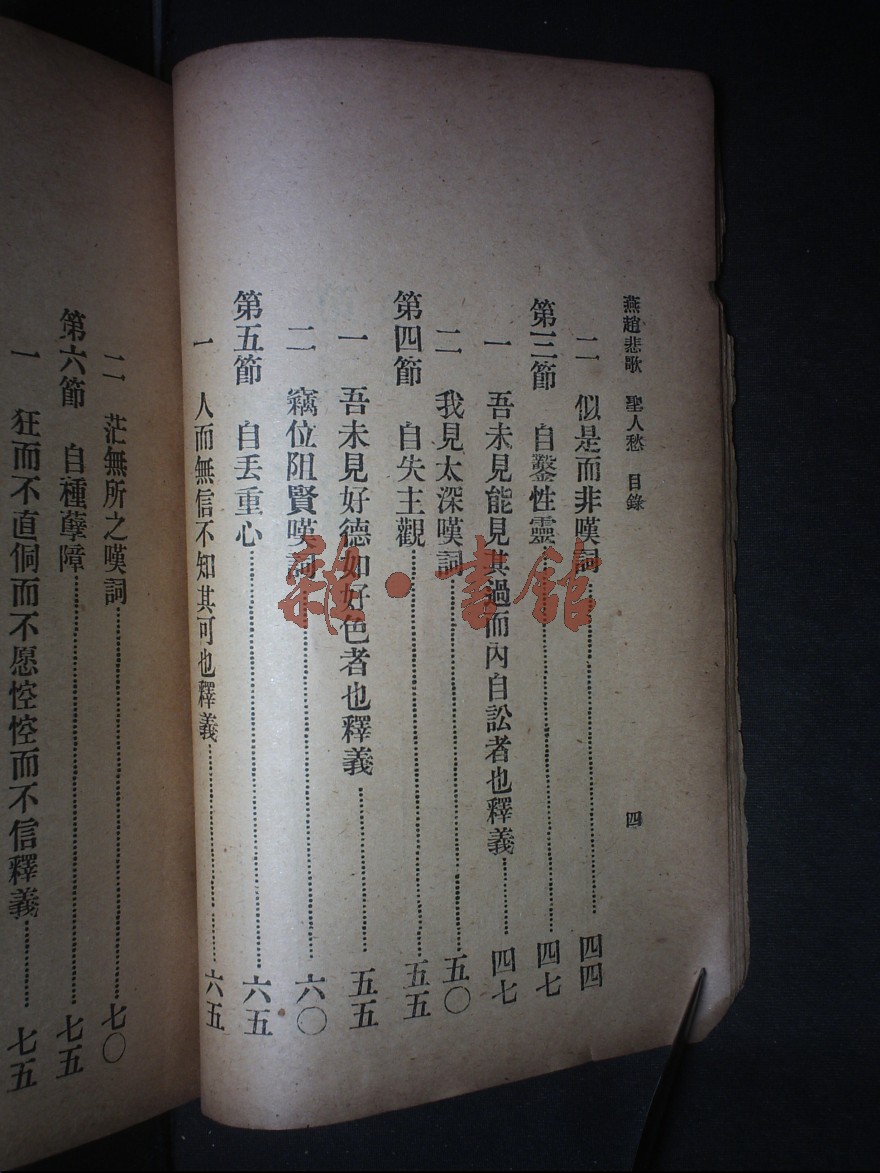 燕趙悲歌 聖人愁 目錄 四
二 似是而非嘆詞 四四
第三節 自鑿性靈 四七
一 吾未見能見其過而內自訟者也釋義 四七
二 我見太深嘆詞 五〇
第四節 自失主觀 五五
一 吾未見好德如好色者也釋義 五五
二 竊位阻賢嘆詞 六〇
第五節 自丟重心 六五
一 人而無信不知其可也釋義 六五
二 茫無所之嘆詞 七〇
第六節 自種孽障 七五
一 狂而不直侗而不愿悾悾而不信釋義 七五
雜·書館